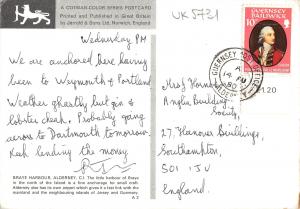 A COTMAN-COLOR SERIES POSTCARD
Printed and Published in Great Britain
by Jarrold & Sons Ltd, Norwich, England
UK5731
Wednesday PM
We are anchored here having
been to Weymouth & Portland.
Weather ghastly but gin &
lobster cheap. Probably going
across to Dartmouth tomorrow.
Kash lending the money.
BRAYE HARBOUR, ALDERNEY, C.I. The little harbour of Braye
in the north of the Island is a fine anchorage for small craft.
Alderney also has its own airport which gives it a fast link with the
mainland and the neighbouring islands of Jersey and Guernsey.
A 2
GUERNSEY
BAILIWICK
10p
GUERNSEY
A
14
80
1.20
Anglia Building
Society,
27, Hanover Buildings,
Southampton,
SO1 1JU
England.